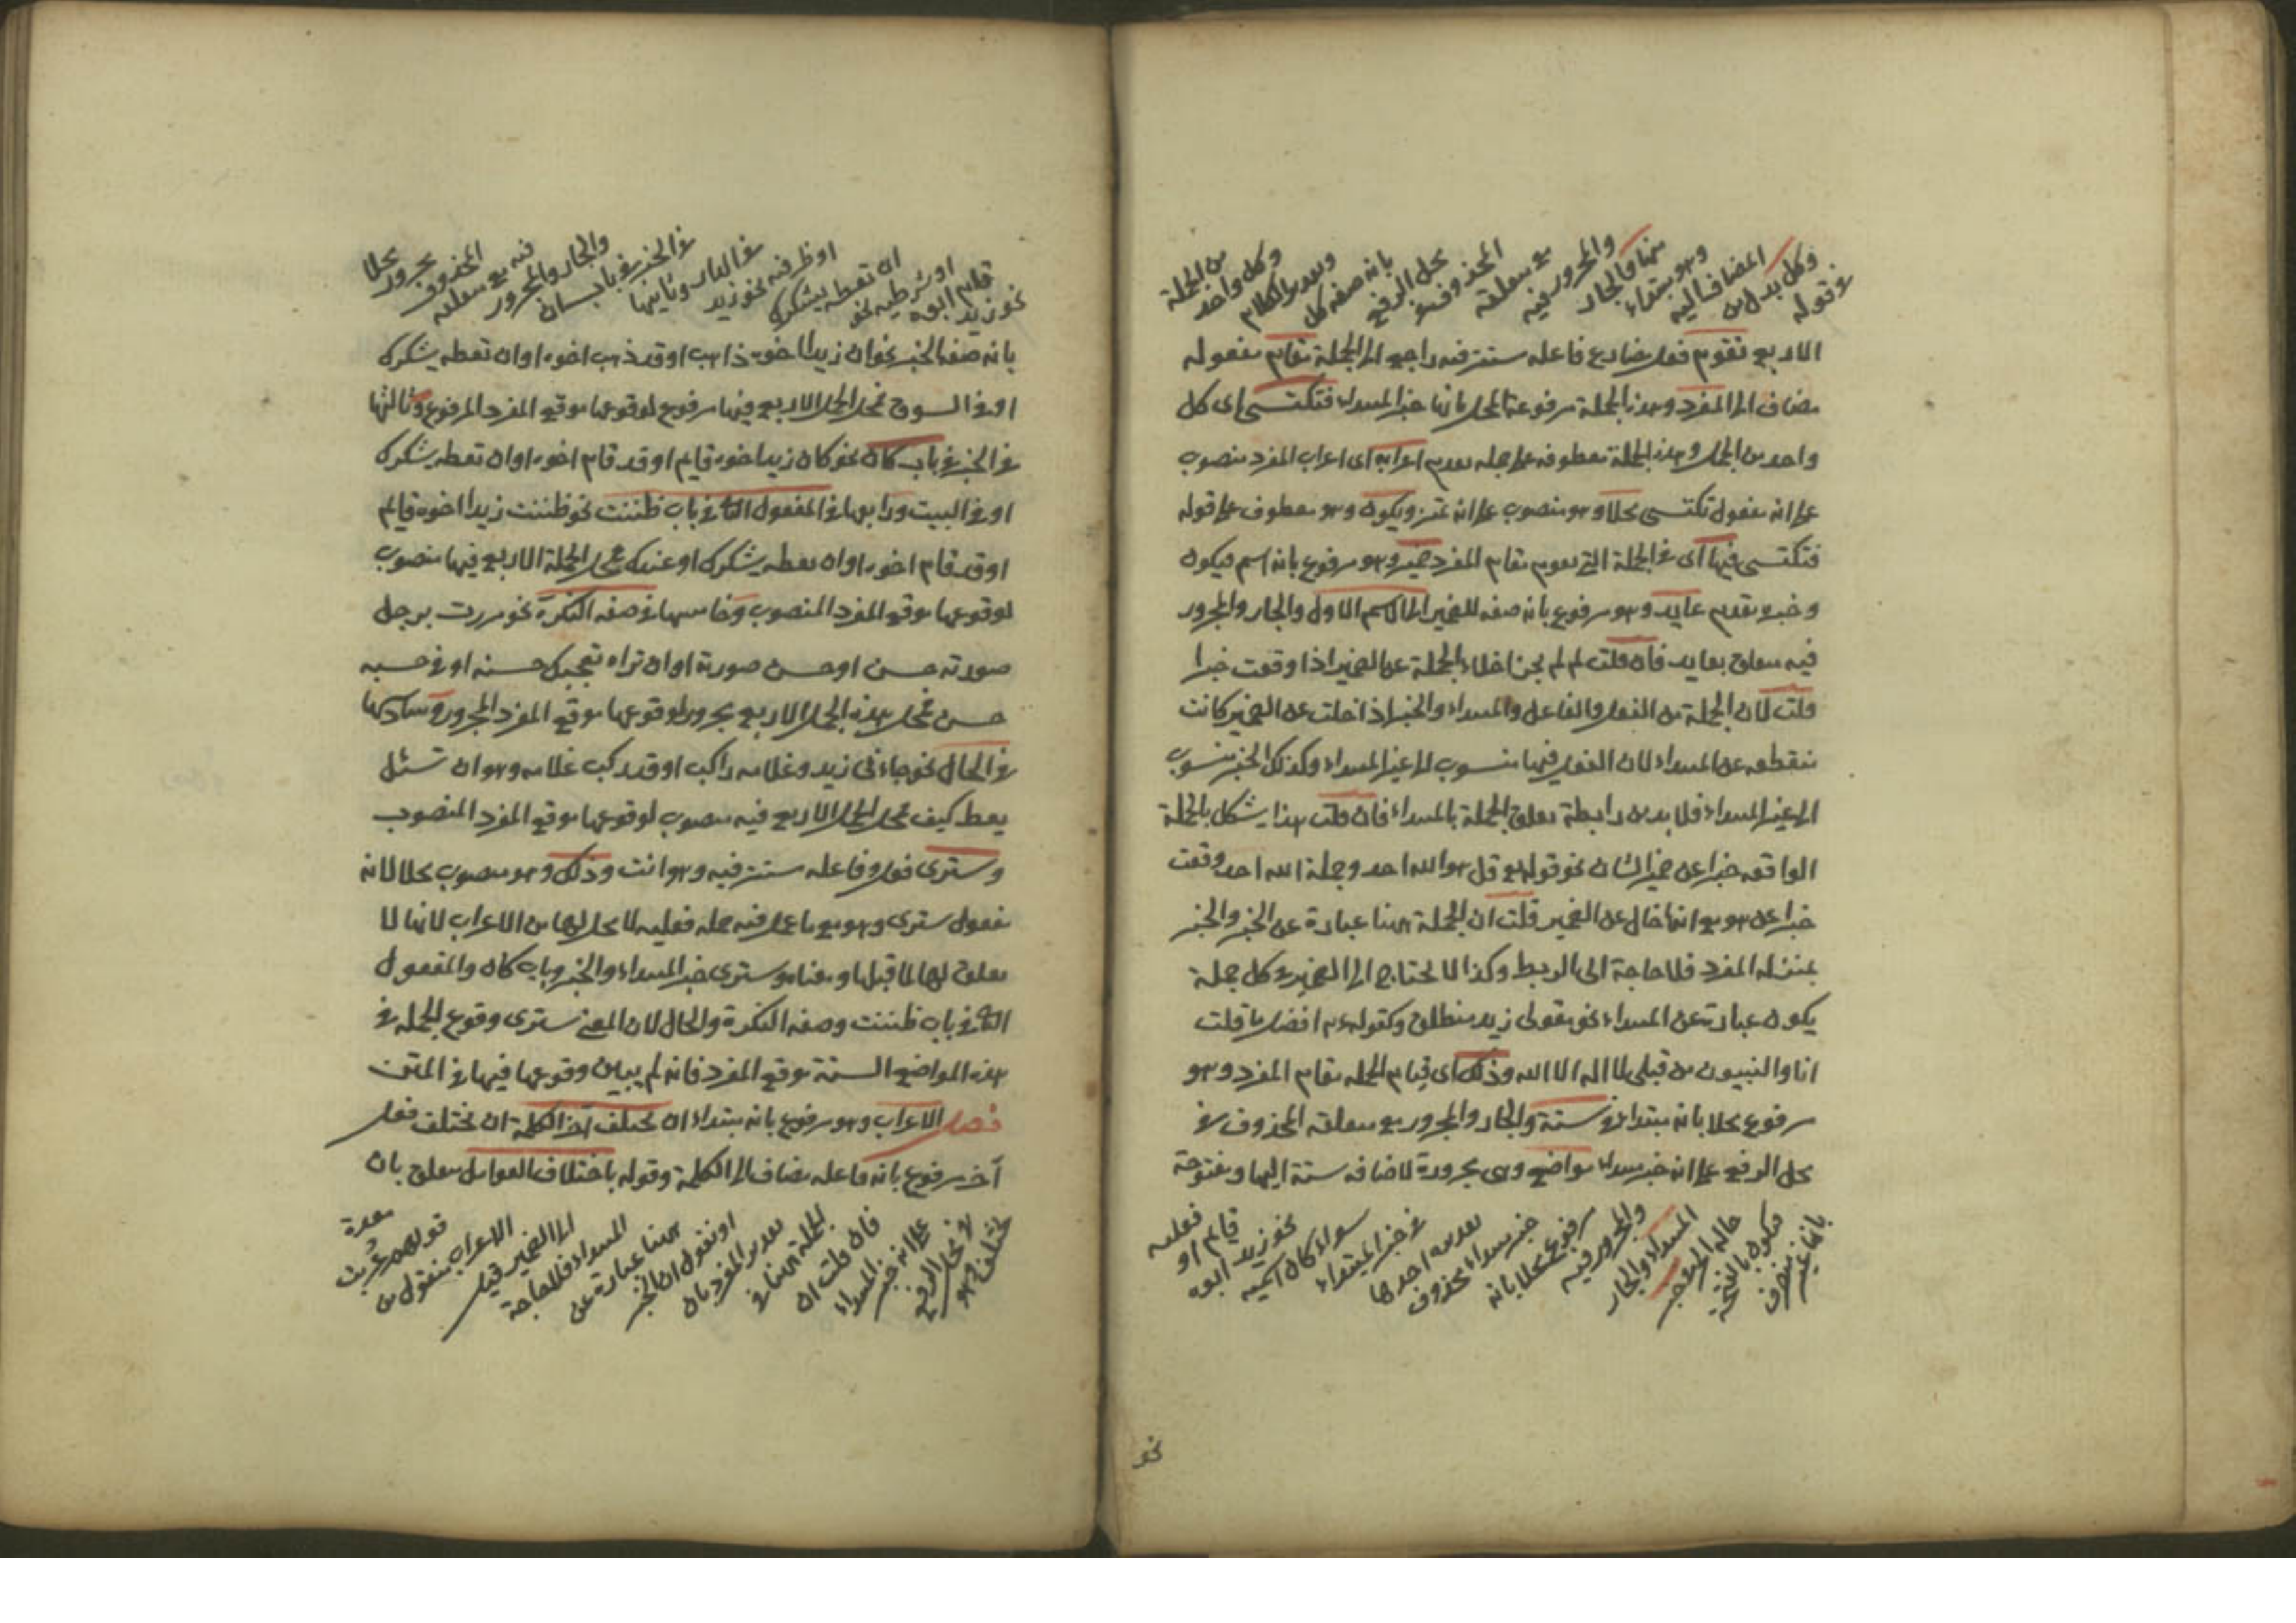 وكل بدل من
المضاف اليه
وهو مبتداء
منها والجار
والمجرور فيه
مع متعلقه
المحذوف في
محل الرفع
بانه صفة كل
وتقدير الكلام
وكل واحد
من الجملة
الاربع تقوم فعل مضارع فاعله مستتر فيه راجع الى الجملة مقام مفعوله
مضاف الى المفرد وهذه الجملة مرفوعة المحل بانها خبر المبتداء فتكتسى اى كل
واحد من الجمل وهذه الجملة معطوفه على جمله تقوم اعرابه اى اعراب المفرد منصوب
على انه مفعول تكتسى محلا وهو منصوب على انه تميز ويكون وهو معطوف على قوله
فتكتسى فيها اى فى الجملة التى تقوم مقام المفرد ضمير وهو مرفوع بانه اسم فيكون
وخبره مقدم عايد وهو مرفوع بانه صفة للضمير الى الاسم الاول والجار والمجرور
فيه متعلق بعايد فان قلت لم لم يجز اخلاء الجملة عن الضمير اذا وقعت خبرا
قلت لان الجملة من الفعل والفاعل والمبتداء والخبر اذا خلت عن الضمير كانت
منقطعه عن المبتداء لان الفعل فيها منسوب الى غير المبتداء وكذلك الخبر منسوب
الى غير المبتداء فلا بد من رابطة تعلق الجملة بالمبتداء فان قلت هذا يشكل بالجملة
الواقعه خبرا عن ضمير الشان نحو قوله تع قل هو الله احد وجملة الله احد وقعت
خبرا عن هو مع انها خال عن الضمير قلت ان الجملة هنا عبارة عن الخبر والخبر
بمنزله المفرد فلا حاجة الى الربط وكذا لا يحتاج الى الضمير فى كل جملة
يكون عبارة عن المبتداء نحو مقولى زيد منطلق وكقوله عم افضل ما قلت
انا والنبيون من قبلى لا اله الا الله وذلك اى قيام الجمله مقام المفرد وهو
مرفوع محلا بانه مبتداء فى ستة والجار والمجرور مع متعلقه المحذوف فى
محل الرفع على انه خبر مبتداء مواضع وهى مجرورة لاضافه ستة اليها ومفتوحة
بانها غير منصرف
فيكون بالفتحة
حالة الجر
المبتداء والجار
والمجرور فيه
مرفوع محلا بانه
خبر مبتداء محذوف
تقديره احدها
فى خبر المبتداء
سواء كان اسميه
نحو زيد ابوه
قايم او
فعليه
نحو
نحو زيد
قام ابوه
او شرطيه نحو
ان تعطه يشكرك
او ظرفيه نحو زيد
فى الدار وثانيها
فى الخبر فى باب ان
والجار والمجرور
فيه مع متعلقه
المحذوف
مجرور
محلا
بانه صفة الخبر نحو ان زيدا اخوه ذاهب او قد ذهب اخوه او ان تعطه يشكرك
او فى السوق محل الجمل الاربع فيها مرفوع لوقوعها موقع المفرد المرفوع وثالثها
فى الخبر فى باب كان نحو كان زيد اخوه قايم او قد قام اخوه او ان تعطه يشكرك
او فى البيت ورابعها فى المفعول الثانى فى باب ظننت نحو ظننت زيدا اخوه قايم
او قد قام اخوه او ان تعطه يشكرك او عندك محل الجملة الاربع فيها منصوب
لوقوعها موقع المفرد المنصوب وخامسها فى صفة النكرة نحو مررت برجل
صورته حسن او حسن صورة او ان تراه تعجبك حسنه او فى حسبه
حسن محل هذه الجمل الاربع مجرور لوقوعها موقع المفرد المجرور وسادسها
فى الحال نحو جاءنى زيد وغلامه راكب او قد ركب غلامه وهو ان تسئل
يعط كيف محل الجمل الاربع فيه منصوب لوقوعها موقع المفرد المنصوب
وسترى فعل وفاعله مستتر فيه وهو انت وذلك وهو منصوب محلا لانه
مفعول سترى وهو مع ما عمل فيه جمله فعليه لا محل لها من الاعراب لانها لا
تعلق لها لما قبلها ومعناه وسترى خبر المبتداء والخبر وباب كان والمفعول
الثانى فى باب ظننت وصفة النكرة والحال لان المعنى سترى وقوع الجمله فى
هذه المواضع الستة موقع المفرد فانه لم يبين وقوعها فيها فى المتن
فصل الاعراب وهو مرفوع بانه مبتداء ان يختلف آخر الكلمة ان يختلف فعل
آخر مرفوع بانه فاعله مضاف الى الكلمة وقوله باختلاف العوامل متعلق بان
يختلف وهو
فى محل الرفع
على انه خبر المبتداء
فان قلت ان
الجملة هنا فى
تقدير المفرد بان
او نقول ان الخبر
هنا عبارة عن
المبتداء فلا حاجة
الى الضمير قيل
الاعراب منقول من
قولهم عربت
معدة